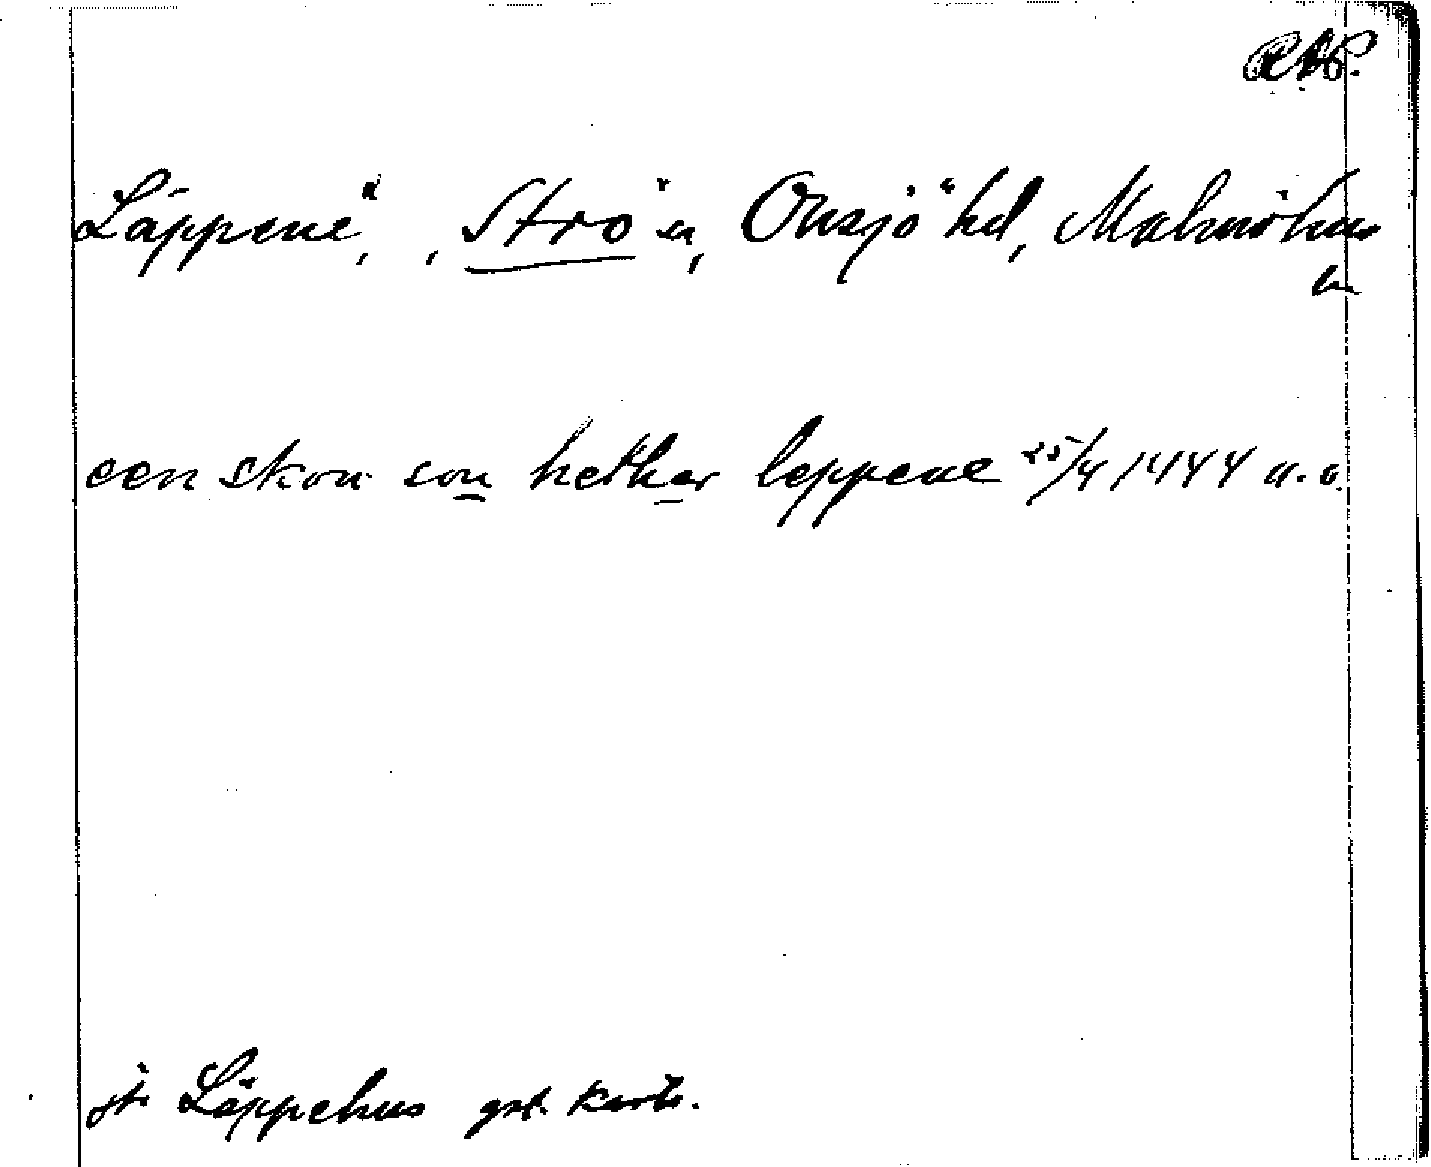 RAP.
"Läppene", , Strö sn, Onsjö hd, Malmöhus
ln
een skow som hether leppene 25/4 1444 a. o.
jfr Läppehus gst. Kartb.